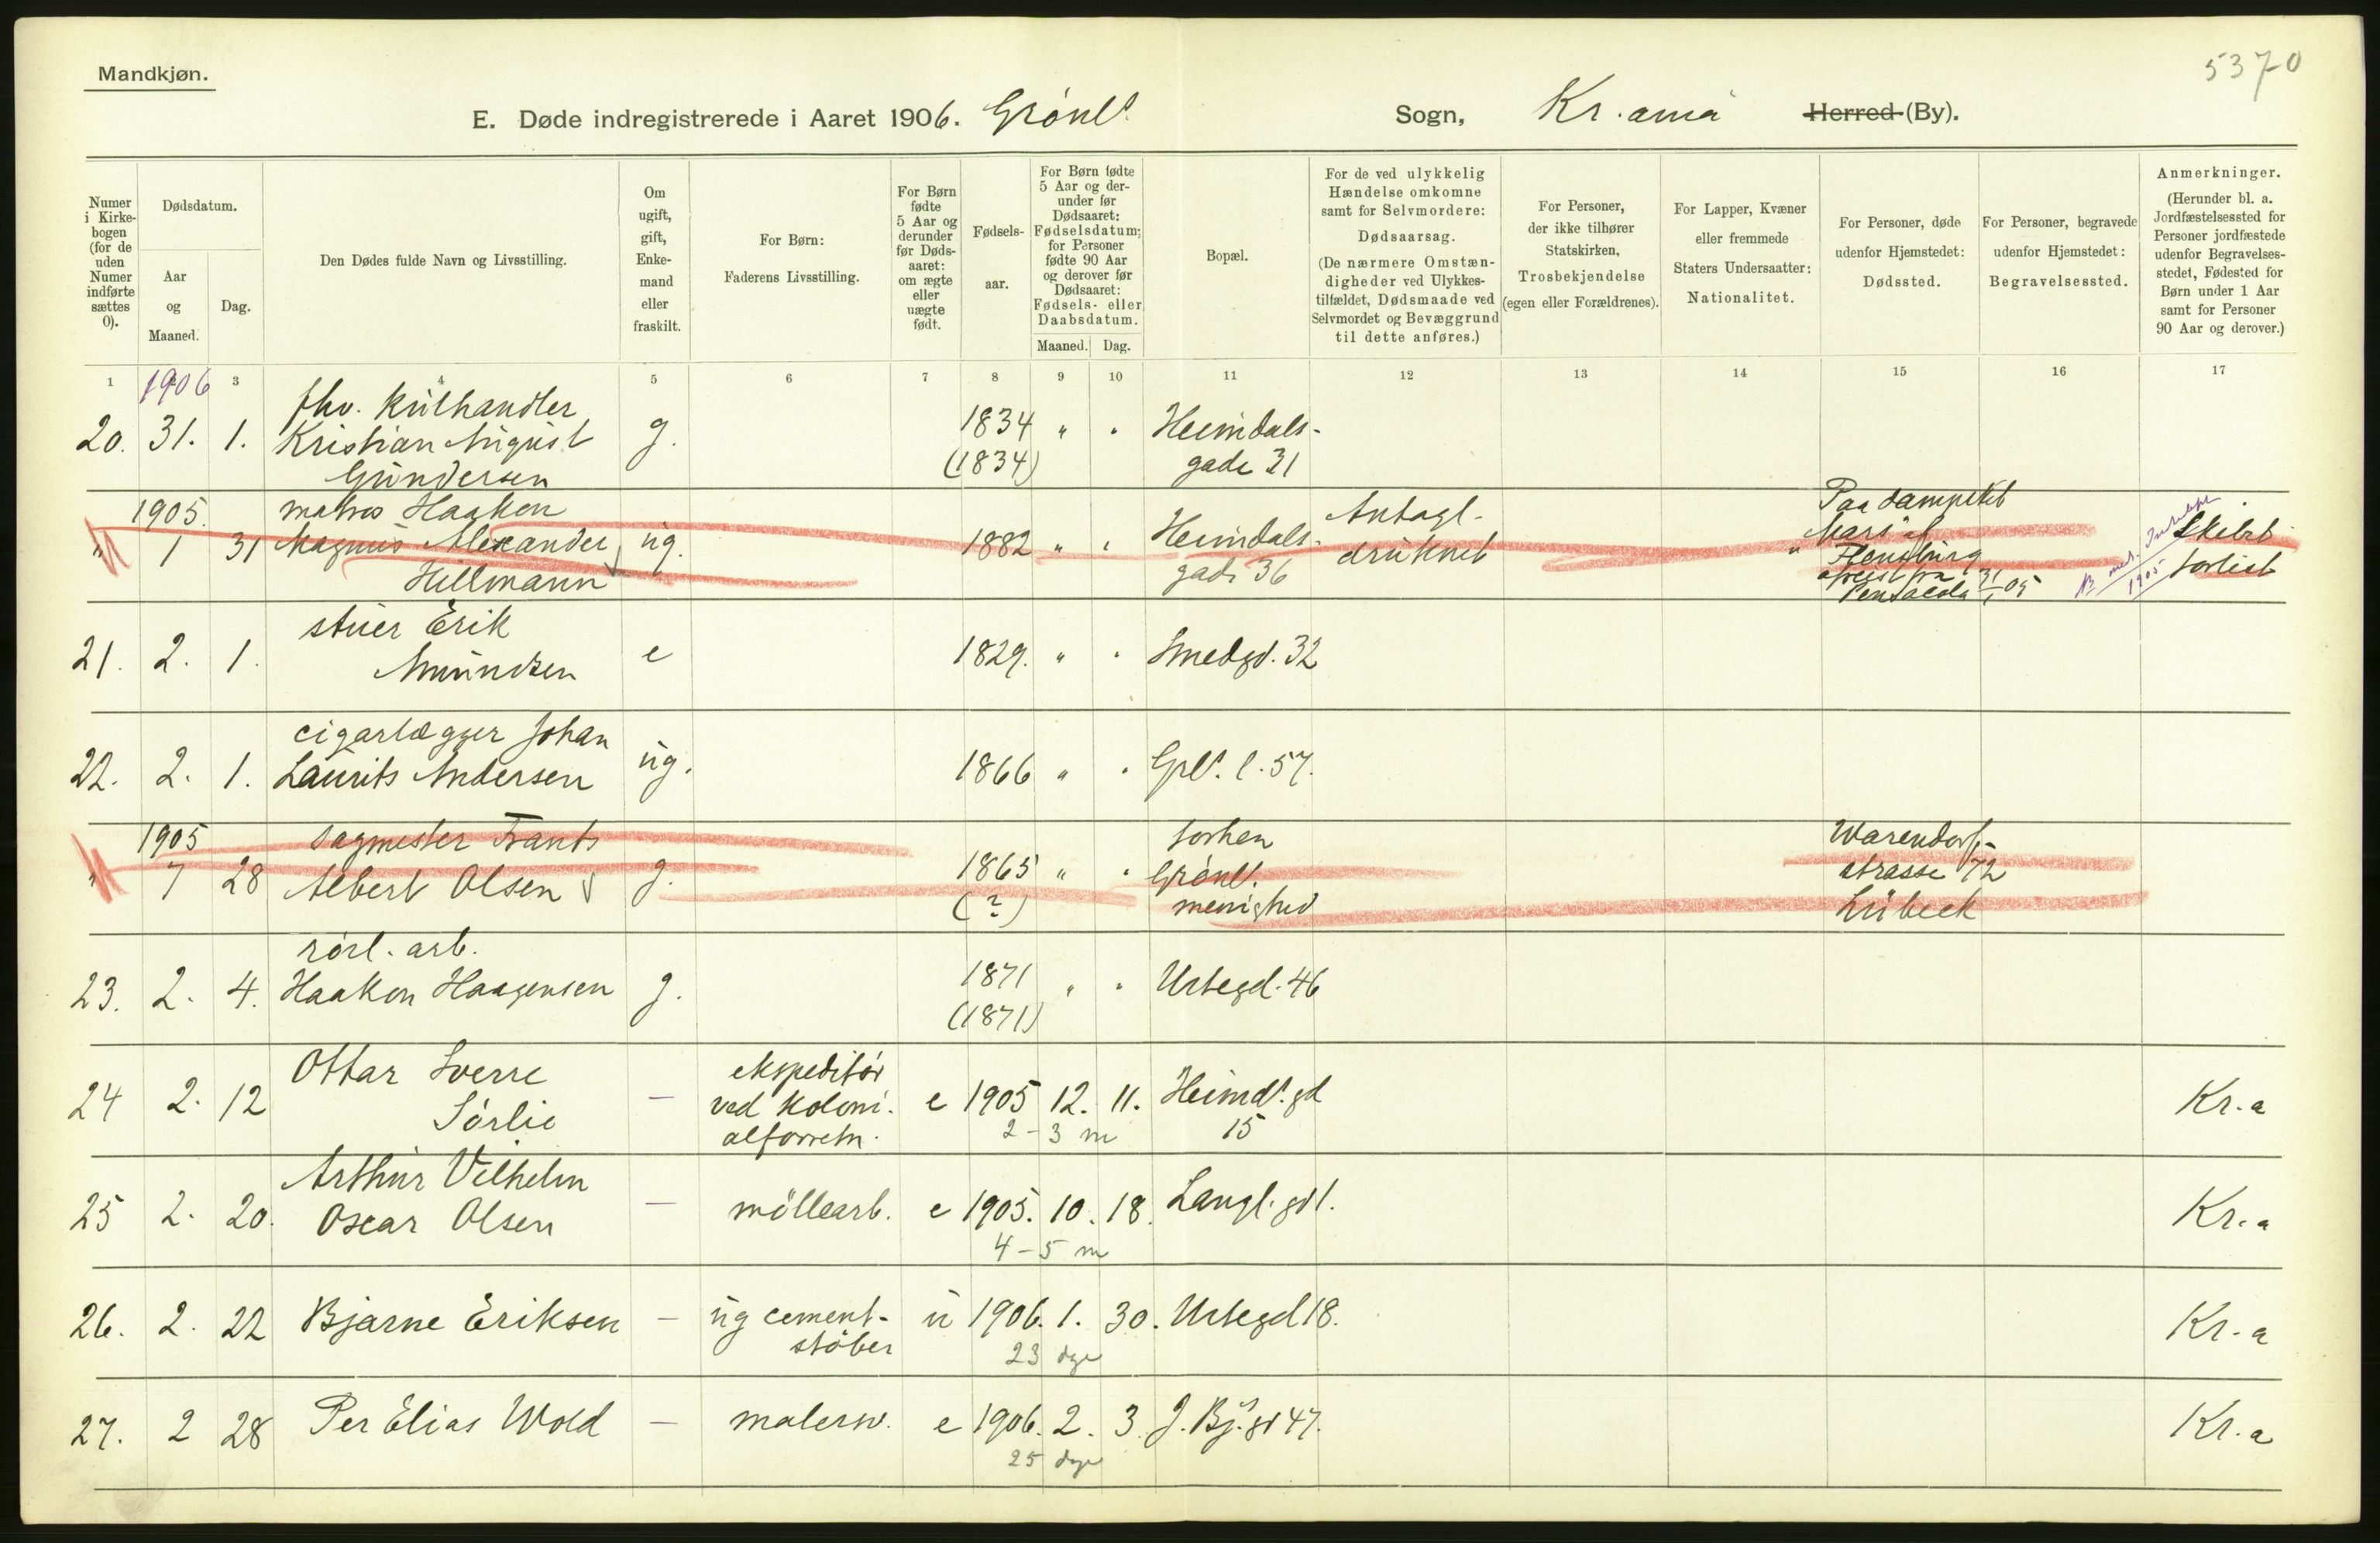 Mandkjøn.
5370
E. Døde indregistrerede i Aaret 1906. Grønl.s Sogn, Kr.ania Herred (By).
Numer i Kirkebogen (for de uden Numer indførte sættes 0).
Dødsdatum.
Aar og Maaned.
Dag.
Den Dødes fulde Navn og Livsstilling.
Om ugift, gift, Enkemand eller fraskilt.
For Børn: Faderens Livsstilling.
For Børn fødte 5 Aar og derunder før Dødsaaret: om ægte eller uægte født.
Fødselsaar.
For Børn fødte 5 Aar og derunder før Dødsaaret: Fødselsdatum; for Personer fødte 90 Aar og derover før Dødsaaret: Fødsels- eller Daabsdatum.
Maaned. Dag.
Bopæl.
For de ved ulykkelig Hændelse omkomne samt for Selvmordere: Dødsaarsag. (De nærmere Omstændigheder ved Ulykkestilfældet, Dødsmaade ved Selvmordet og Bevæggrund til dette anføres.)
For Personer, der ikke tilhører Statskirken, Trosbekjendelse (egen eller Forældrenes).
For Lapper, Kvæner eller fremmede Staters Undersaatter: Nationalitet.
For Personer, døde udenfor Hjemstedet: Dødssted.
For Personer, begravede udenfor Hjemstedet: Begravelsessted.
Anmerkninger. (Herunder bl. a. Jordfæstelsessted for Personer jordfæstede udenfor Begravelsesstedet, Fødested for Børn under 1 Aar samt for Personer 90 Aar og derover.)
1 3 4 5 6 7 8 9 10 11 12 13 14 15 16 17
1906
fhv. kulhandler
20. 31. 1. Kristian August g. 1834 " " Heimdals-
Gundersen (1834) gade 31
1905. matros Haakon
" 1 31 Magnus Alexander ug. 1882 " " Heimdals-
Hillmann gade 36
Antagl.
druknet
Paa dampskib
"Mars" af
Flensburg
afreist fra
Pensacola 31/1 05
Skibet
forlist
1905
stuer Erik
21. 2. 1. Amundsen e 1829. " " Smedgd. 32
cigarlægger Johan
22. 2. 1. Laurits Andersen ug. 1866 " " Grl.s l. 57.
1905 sagmester Frants
" 7 28 Albert Olsen g. 1865 " "
(?)
forhen
Grønl.
menighed
Warendorf-
strasse 72
Lübeck
rørl. arb.
23. 2. 4. Haakon Haagensen g. 1871 " " Urtegd. 46
(1871)
Ottar Sverre
Sørlie
24 2. 12 — ekspeditør
ved koloni-
alforretn.
e 1905 12. 11. Heimd.s gd
15
2-3 m
Kr.a
Arthur Vilhelm
25 2. 20. Oscar Olsen — møllearb. e 1905. 10. 18. Langl. gd 1. Kr.a
4-5 m
26. 2. 22 Bjarne Eriksen — ug cement-
støber
u 1906. 1. 30. Urtegd 18. Kr.a
23 dge
27. 2 28 Per Elias Wold — malersv. e 1906. 2. 3. J. Bj.s gd 47. Kr.a
25 dge